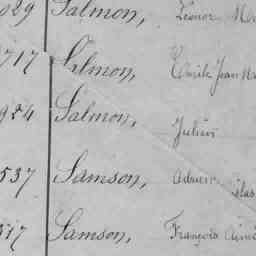 029 Salmon, Léonor
717 Salmon, Emile Jean M
924 Salmon, Julien
537 Samson, Adrien
517 Samson, François Aimé